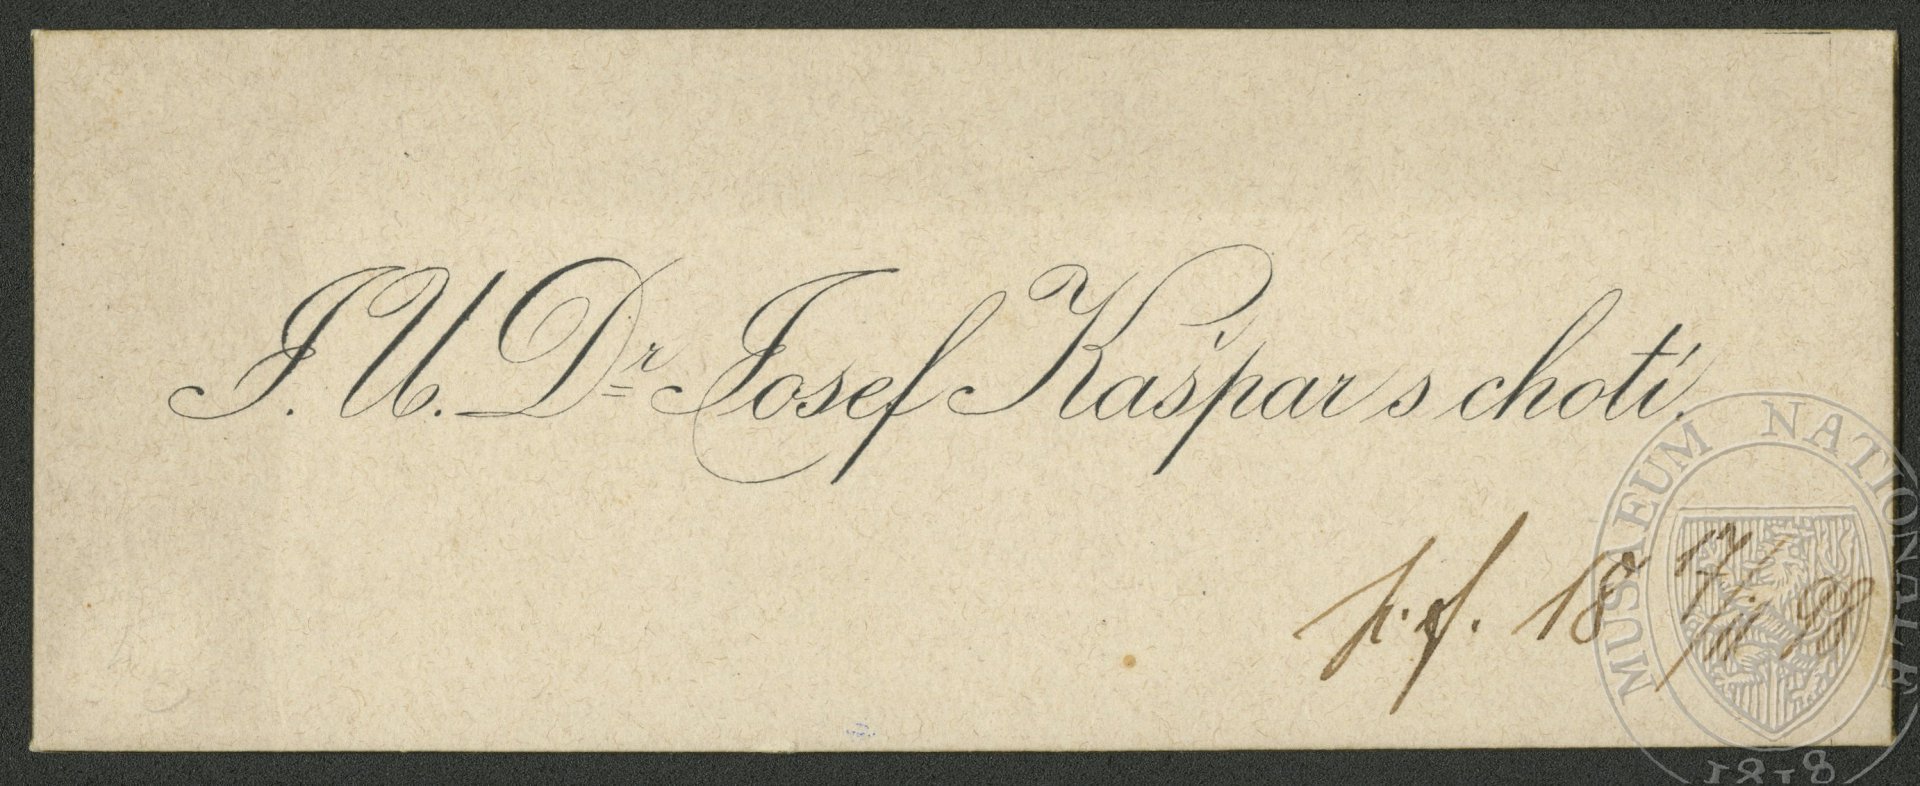 J. U. Dr Josef Kašpar s chotí.
p. f. 18 17/III 98
MUSAEUM NATIONALE
1818